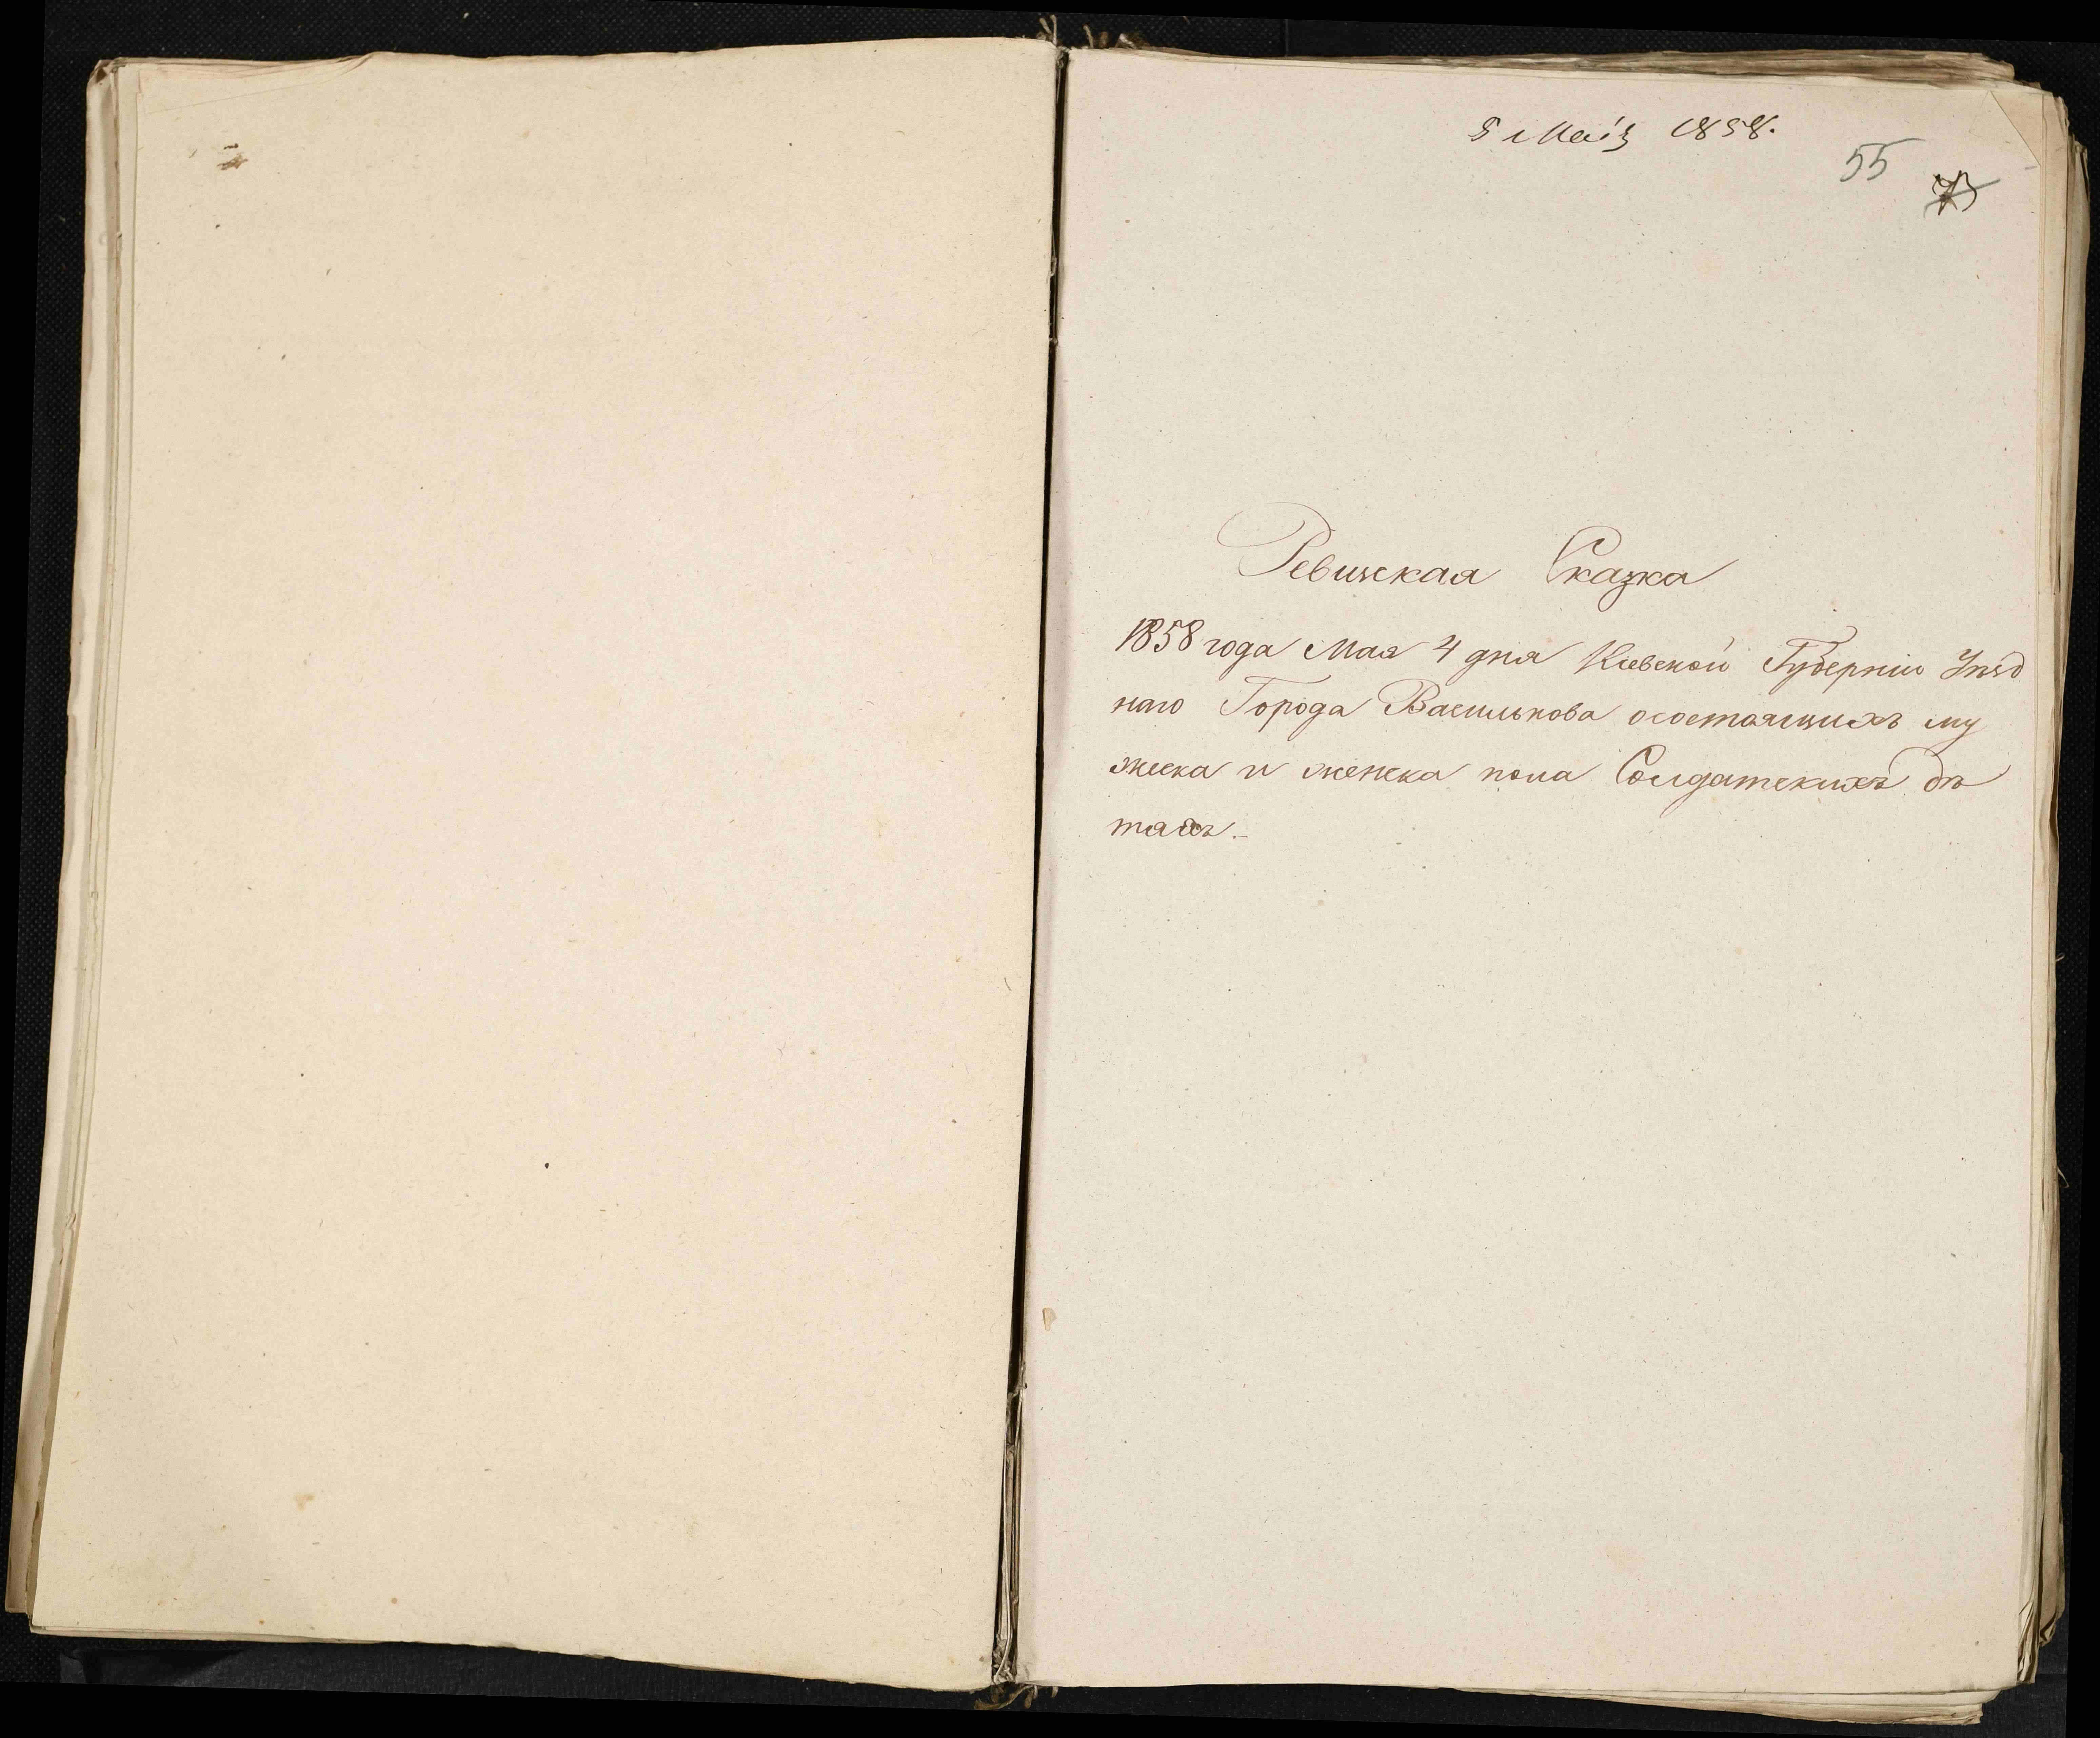 5 Маія 1858.
55
Ревизская Сказка
1858 года Мая 4 дня Кіевской Губерніи Уѣзд
наго Города Василькова осостаящихъ му
жеска и женска пола Солдатскихъ дѣ
тахъ.